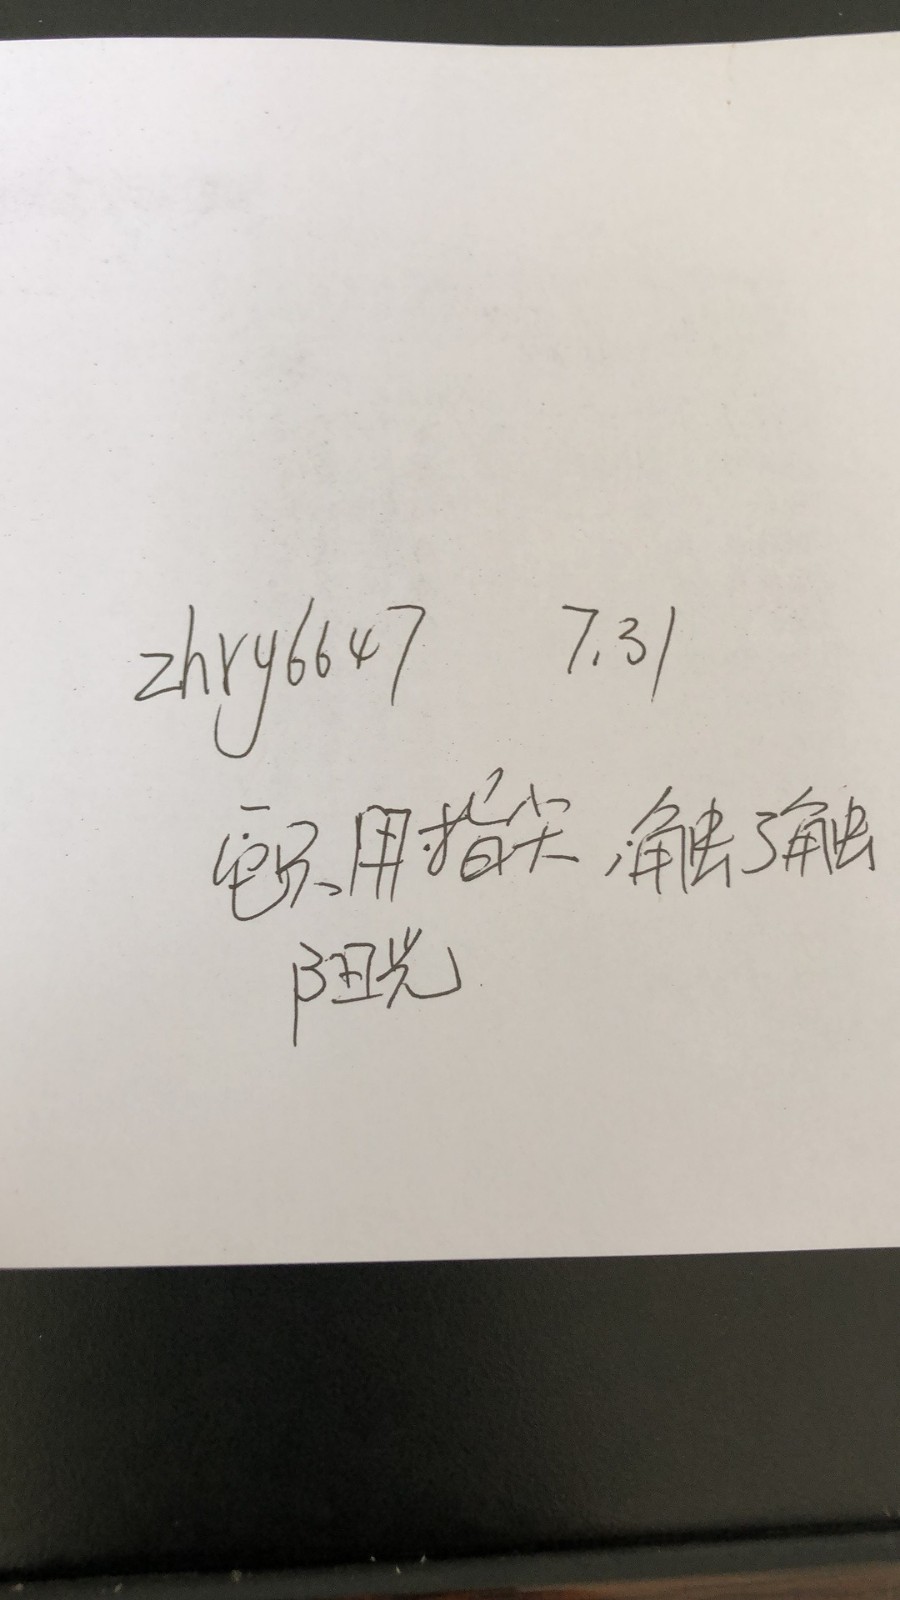 zhry6647 7.31
用指尖触了触
阳光